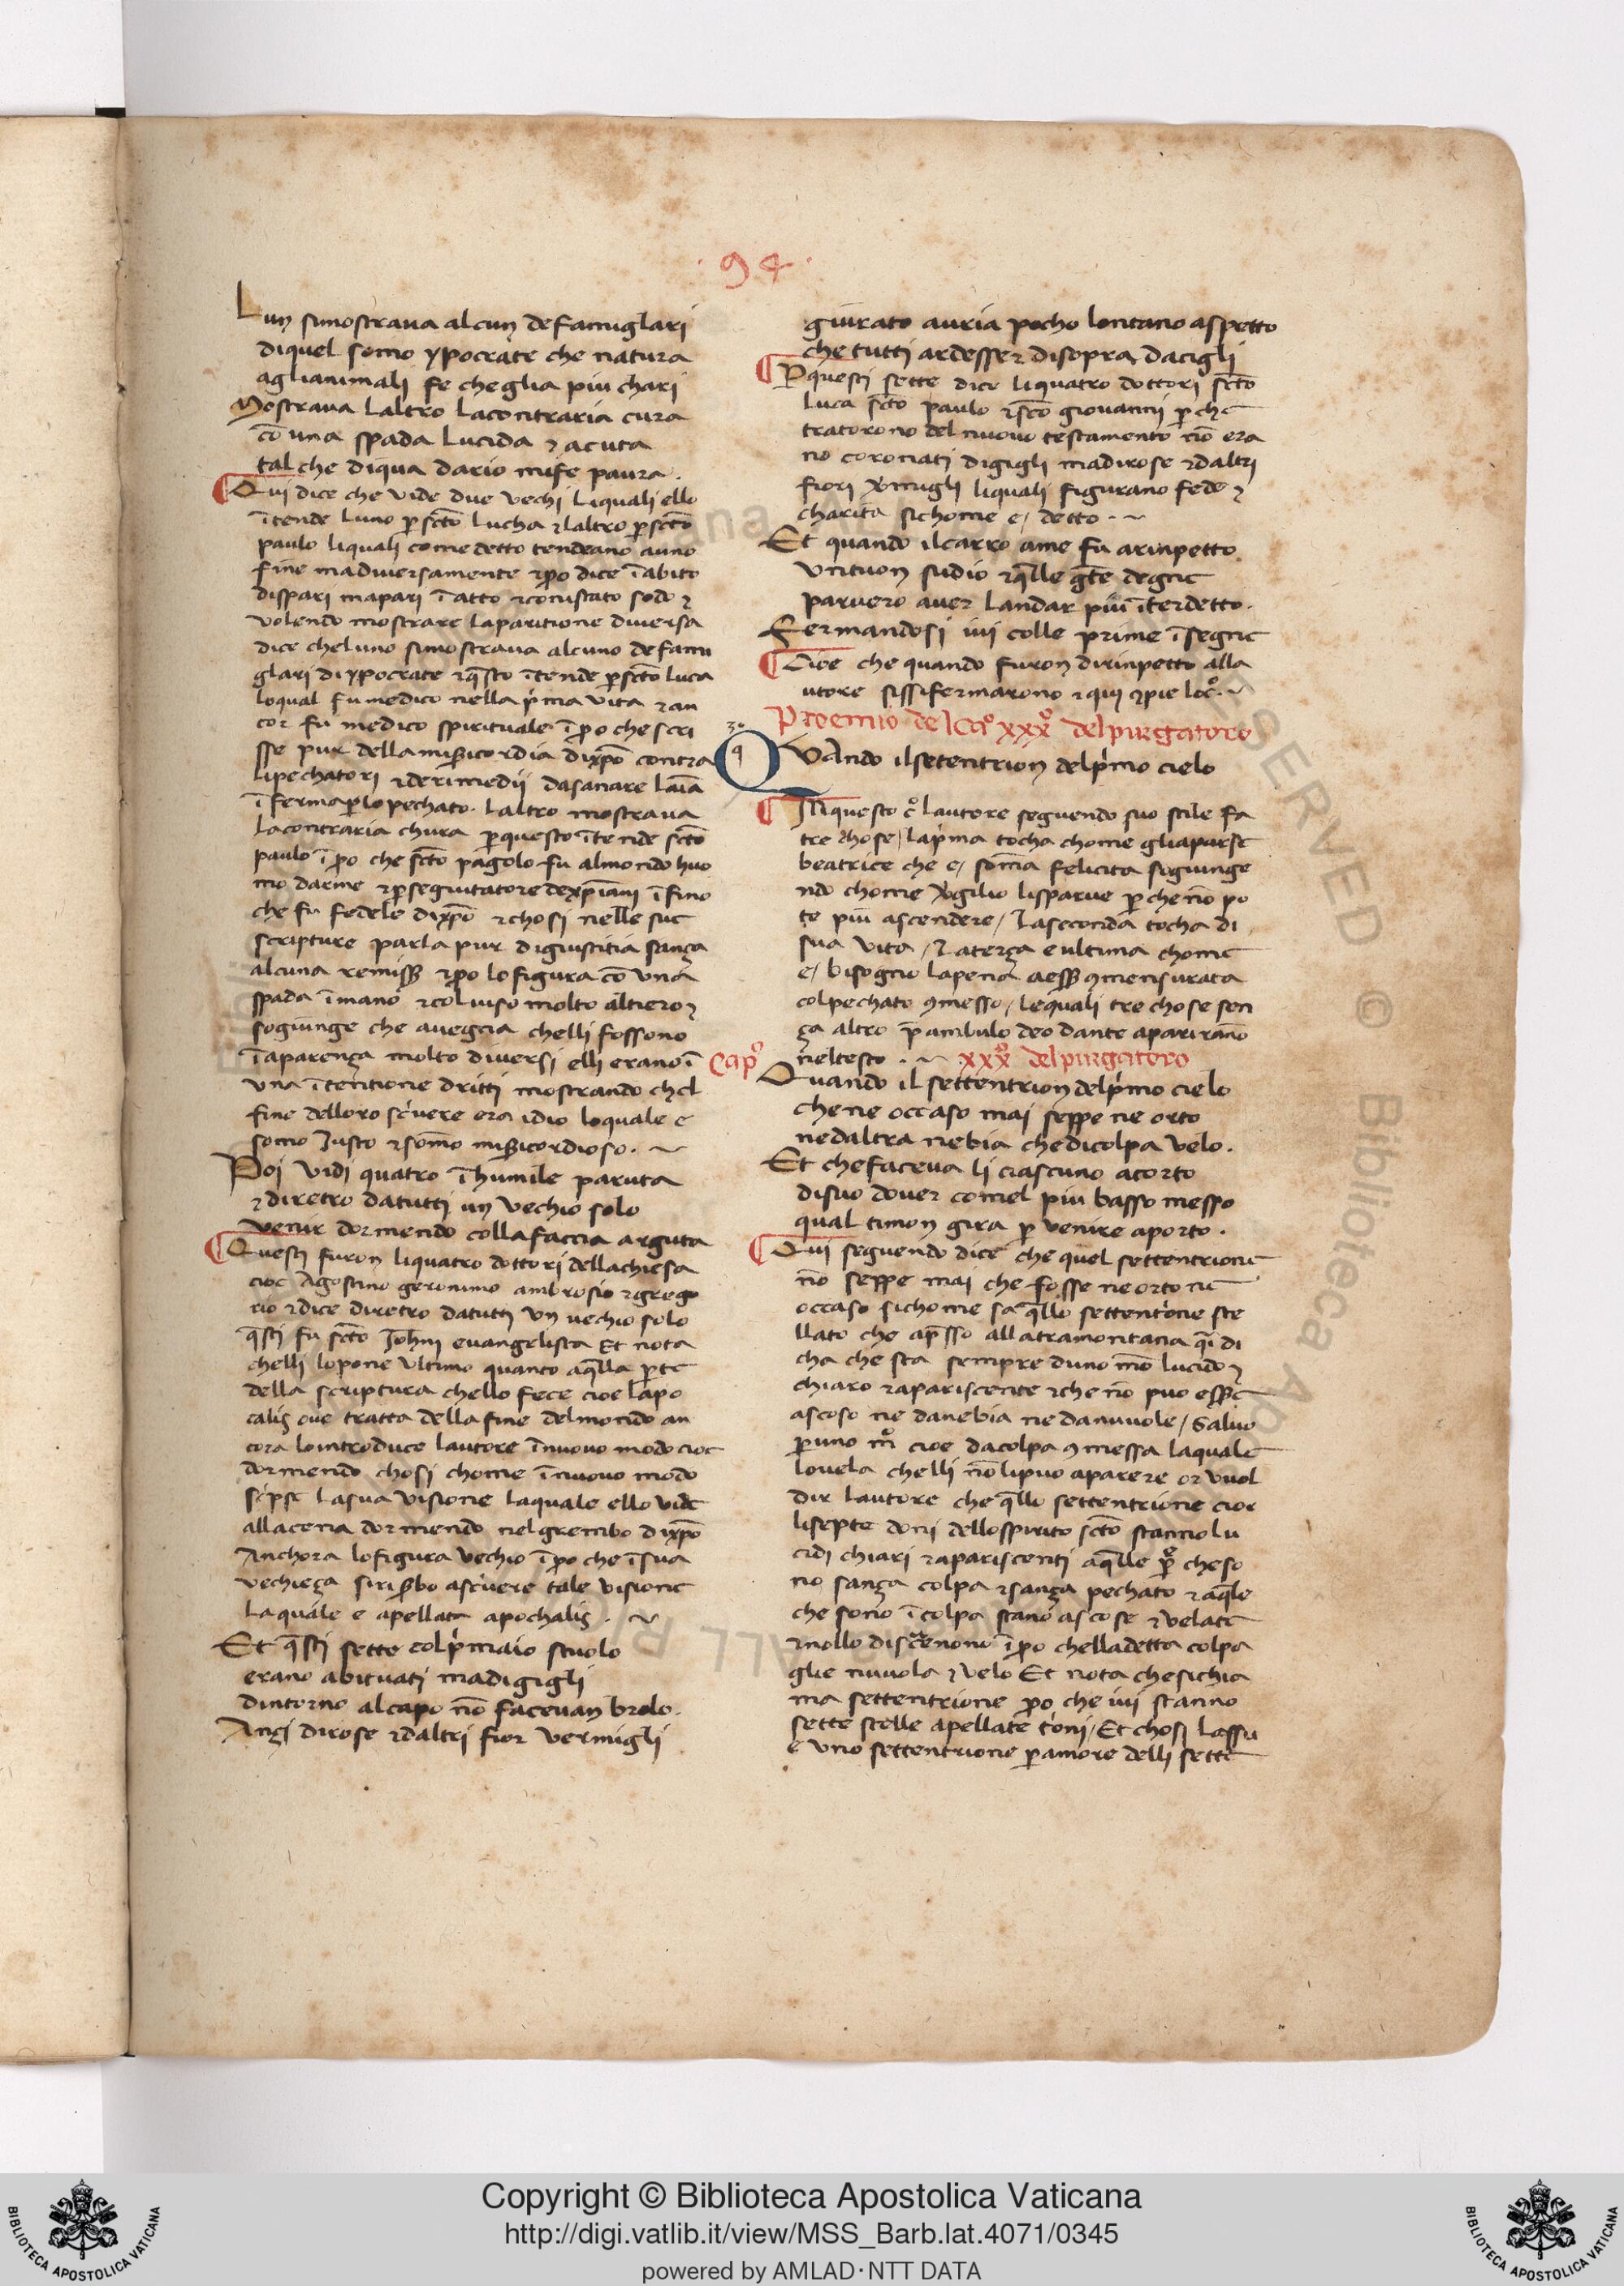 · 94 ·
Lun simostraua alcun defamiglari
diquel somo ypocrate che natura
aglianimali fe cheglia piu chari
Mostraua laltro lacontraria cura
cō una spada lucida ⁊ acuta
tal che diqua dario mife paura.
Qui dice che vide due vechi liquali ello
ītende luno ꝑ sc̄to lucha ⁊ laltro ꝑ sc̄to
paulo liquali come detto tendeano auno
fine madiuersamente ⁊ꝑo dice ī abito
dispari mapari ī atto ⁊conistato sodo ⁊
volendo mostrare laparitione diuersa
dice cheluno simostraua alcuno defami
glari di ypocrate ⁊ q̄sto ītende ꝑ sc̄to luca
loqual fu medico nella p̓ma vita ⁊ an
cor fu medico spirituale ī ꝑo che scri
sse pur dellamisericordia dixp̄o contra
lipechatori ⁊derimedij dasanare laīa
īferma ꝑlo pechato. laltro mostraua
lacontraria chura ꝑ questo ītende sc̄to
paulo ī ꝑo che sc̄to pagolo fu almondo huo
mo darme ⁊ ꝑseguitatore dexp̄iani īfino
che fu fedele dixp̄o ⁊ chosi nelle sue
scripture parla pur digiustitia sança
alcuna remiss. ⁊ꝑo lo figura cō una
spada ī mano ⁊col uiso molto altiero ⁊
sogiunge che auegna chelli fossono
ī aparença molto diuersi elli erano ī
una ītentione dritti mostrando chel
fine delloro scriuere era idio loquale e
somo Justo ⁊ somo misericordioso. ~
Poi vidi quatro ī humile paruta
⁊ diretro datutti un vechio solo
venir dormendo colla faccia arguta
Questi furon liquatro dottori dellachiesa
cioe Agostino geronimo ambrosio ⁊ grego
rio ⁊ dice diretro datutti un uechio solo
q̄sti fu sc̄to Johni euangelista Et nota
chelli lopone ultimo quanto aq̄lla ꝑte
della scriptura chello fece cioe lapo
calis oue tratta della fine delmondo an
cora lointroduce lautore ī nuouo modo cioe
dormendo chosi chome ī nuouo modo
scripse lasua visione laquale ello vide
allacena dormendo nel grembo dixp̄o
Anchora lo figura vechio ī ꝑo che ī sua
vechieça siriserbo ascriuere tale visione
laquale e apellata apochalis. ~
Et q̄sti sette colp̓maio stuolo
erano abituati madigigli
dintorno alcapo nō faceuan brolo.
Ançi dirose ⁊daltri fior vermigli
giurato auria pocho lontano aspetto
che tutti ardesser disopra dacigli
Ꝑ questi sette dice liquatro dottori sc̄to
Luca sc̄to paulo ⁊sc̄o giouanni ꝑ che
tratorono del nuouo testamento nō era
no coronati digigli madirose ⁊daltri
fiori v̓migli liquali figurano fede ⁊
charita sichome e / detto. ~
Et quando ilcarro ame fu arinpetto
un tuon sudio ⁊q̄lle gēte degne
paruero auer landar piu īterdetto.
Fermandosi iui colle prime īsegne
Cioe che quando furon dirinpetto alla
utore sissifermarono ⁊ qui ꝯpie loc̊. ~
Proemio delcap̊ xxx̊ delpurgatoro
30
QUAndo ilsetentrion delp̓mo cielo
IN questo c̊ lautore seguendo suo stile fa
tre chose / lap̓ma tocha chome gliaparse
beatrice che e / soma felicita sogiunge
ndo chome v̓gilio lisparue ꝑ che nō po
te piu ascendere / laseconda tocha di
sua vita / Laterça e ultima chome
e / bisogno lapena aess. ꝯmensurata
colpechato ꝯmesso / lequali tre chose sen
ça altro p̄ambulo deo dante aparirāno
neltesto. ~
Cap̊ xxx̊ delpurgatoro
Quando il settentrion delp̓mo cielo
che ne occaso mai seppe ne orto
nedaltra nebia chedicolpa velo.
Et chefaceua li ciascuno acorto
disuo douer comel piu basso messo
qual timon gira ꝑ venire aporto.
Qui seguendo dice che quel settentrione
nō seppe mai che fosse ne orto ne
occaso sichome sa q̄llo settentrione ste
llato che apresso allatramontana q̄i di
cha che sta sempre duno mō lucido ⁊
chiaro ⁊apariscente ⁊che nō puo esser
ascoso ne danebia ne danuuole / Saluo
ꝑ uno m̊ cioe dacolpa ꝯmessa laquale
louela chelli nō lipuo aparere or vuol
dir lautore che q̄llo settentrione cioe
lisepte doni dellospirito sc̄to stanno lu
cidi chiari ⁊apariscenti aq̄lle ꝑ̊ che so
no sança colpa ⁊sança pechato ⁊ aq̄le
che sono ī colpa stano ascose ⁊ velate
⁊nollo discernono ī ꝑo chelladetta colpa
glie nuuola ⁊ velo Et nota chesichia
ma settentrione ꝑo che iui stanno
sette stelle apellate trioni / Et chosi lassu
e uno settentrione ꝑ amore delli sette
Copyright © Biblioteca Apostolica Vaticana
http://digi.vatlib.it/view/MSS_Barb.lat.4071/0345
powered by AMLAD·NTT DATA
BIBLIOTECA APOSTOLICA VATICANA
BIBLIOTECA APOSTOLICA VATICANA